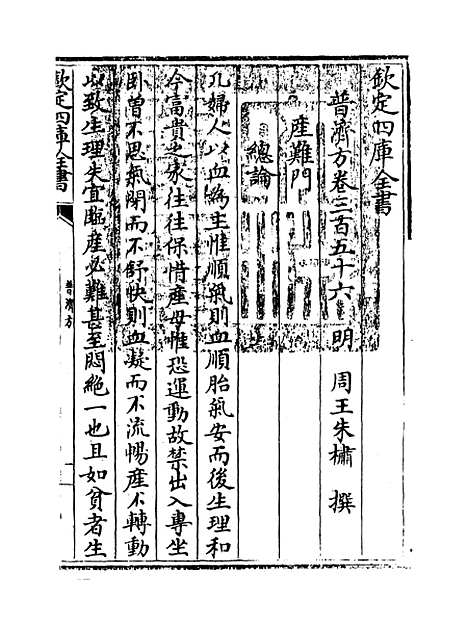 欽定四庫全書
普濟方卷三百五十六　明　周王朱橚　撰
産難門
總論
凡婦人以血為主惟順氣則血順胎氣安而後生理和
今富貴之家往往保惜產母惟恐運動故禁出入專坐
卧曽不思氣閉而不舒快則血凝而不流暢產不轉動
以致生理失宜臨産必難甚至悶絶一也且如貧者生
欽定四庫全書
普濟方
一